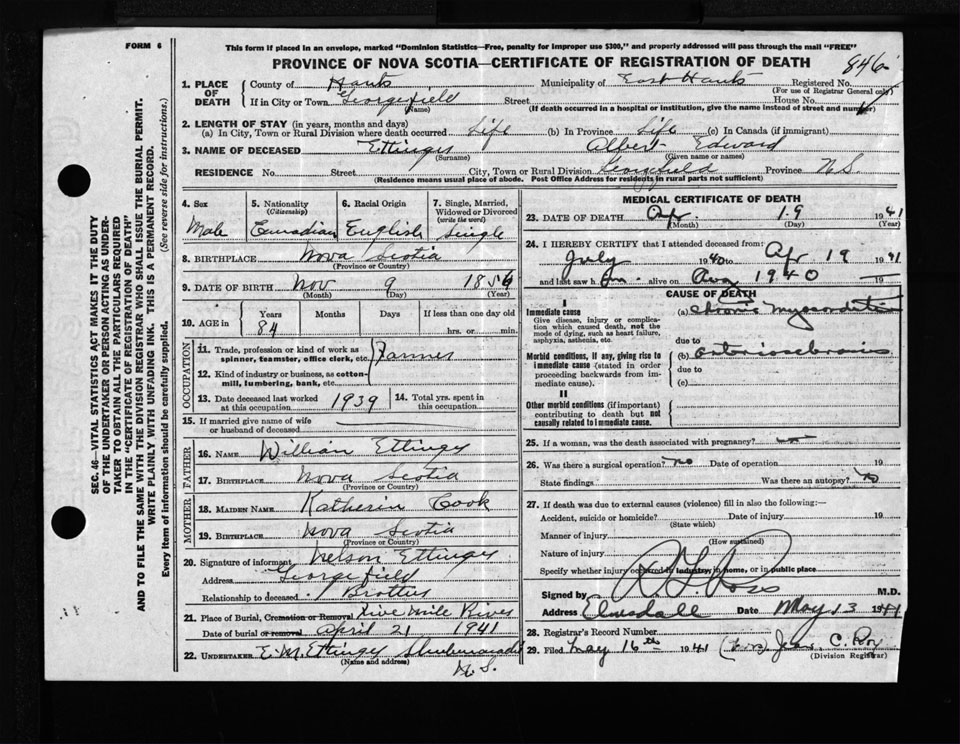 FORM 6
This form if placed in an envelope, marked "Dominion Statistics—Free, penalty for improper use $300," and properly addressed will pass through the mail "FREE"
PROVINCE OF NOVA SCOTIA—CERTIFICATE OF REGISTRATION OF DEATH
846
1. PLACE OF DEATH
County of Hants Municipality of East Hants Registered No.
(For use of Registrar General only)
If in City or Town Georgefield Street House No.
(Name) (If death occurred in a hospital or institution, give the name instead of street and number)
2. LENGTH OF STAY (in years, months and days)
(a) In City, Town or Rural Division where death occurred Life (b) In Province Life (c) In Canada (if immigrant)
3. NAME OF DECEASED Ettinger Albert Edward
(Surname) (Given name or names)
RESIDENCE No. Street City, Town or Rural Division Georgefield Province N.S.
(Residence means usual place of abode. Post Office Address for residents in rural parts not sufficient)
4. Sex
Male
5. Nationality
(Citizenship)
Canadian
6. Racial Origin
English
7. Single, Married, Widowed or Divorced
(write the word)
Single
8. BIRTHPLACE Nova Scotia
(Province or Country)
9. DATE OF BIRTH Nov 9 1856
(Month) (Day) (Year)
10. AGE in Years Months Days If less than one day old
84 hrs. or min.
OCCUPATION
11. Trade, profession or kind of work as spinner, teamster, office clerk, etc. Farmer
12. Kind of industry or business, as cotton-mill, lumbering, bank, etc.
13. Date deceased last worked at this occupation 1939
14. Total yrs. spent in this occupation
15. If married give name of wife or husband of deceased
FATHER
16. NAME William Ettinger
17. BIRTHPLACE Nova Scotia
(Province or Country)
MOTHER
18. MAIDEN NAME Katherin Cook
19. BIRTHPLACE Nova Scotia
(Province or Country)
20. Signature of informant Nelson Ettinger
Address Georgefield
Relationship to deceased Brother
21. Place of Burial, Cremation or Removal Five Mile River
Date of burial or removal April 21 1941
22. UNDERTAKER E.M. Ettinger Shubenacadie
(Name and address)
N.S.
MEDICAL CERTIFICATE OF DEATH
23. DATE OF DEATH Apr. 19 1941
(Month) (Day) (Year)
24. I HEREBY CERTIFY that I attended deceased from:
July 1940 to Apr 19 1941
and last saw h im alive on Aug 1940 19
CAUSE OF DEATH
I
Immediate cause
Give disease, injury or complication which caused death, not the mode of dying, such as heart failure, asphyxia, asthenia, etc.
(a) Chronic Myocarditis
due to
Morbid conditions, if any, giving rise to immediate cause (stated in order proceeding backwards from immediate cause).
(b) arteriosclerosis
due to
(c)
II
Other morbid conditions (if important) contributing to death but not causally related to immediate cause.
25. If a woman, was the death associated with pregnancy?
26. Was there a surgical operation? no Date of operation 19
State findings Was there an autopsy? no
27. If death was due to external causes (violence) fill in also the following:—
Accident, suicide or homicide? Date of injury 19
(State which)
Manner of injury
(How sustained)
Nature of injury
Specify whether injury occurred in industry, in home, or in public place
Signed by M.D.
Address Elmsdale Date May 13 1941
28. Registrar's Record Number
29. Filed May 16th 1941 C. Roy
(Division Registrar)
SEC. 46—VITAL STATISTICS ACT MAKES IT THE DUTY
OF THE UNDERTAKER OR PERSON ACTING AS UNDER-
TAKER TO OBTAIN ALL THE PARTICULARS REQUIRED
IN THE "CERTIFICATE OF REGISTRATION OF DEATH"
AND TO FILE THE SAME WITH THE DIVISION REGISTRAR WHO SHALL ISSUE THE BURIAL PERMIT.
WRITE PLAINLY WITH UNFADING INK. THIS IS A PERMANENT RECORD.
Every item of information should be carefully supplied. (See reverse side for instructions.)